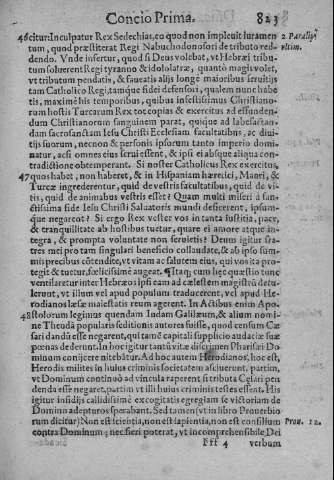 Concio Prima. 823
46 citur: Inculpatur Rex Sedechias, eo quod non impleuit iuramen 2 Paralip.
tum, quod præstiterat Regi Nabuchodonosori de tributo red- vltim.
dendo. Vnde infertur, quod si Deus volebat, vt Hebræi tribu-
tum soluerent Regi tyranno & idololatræ, quanto magis volet,
vt tributum pendatis, & fauealis alijs longè maioribus seruitijs
tam Catholico Regi, tamque fidei defensori, qualem nunc habe
tis, maximè his temporibus, quibus infestissimus Christiano-
rum hostis Turcarum Rex tot copias & exercitus ad effunden-
dum Christianorum sanguinem parat, quique ad labefactan-
dam sacrosanctam Iesu Christi Ecclesiam facultatibus, ac diui-
tijs suorum, necnon & personis ipsorum tanto imperio domi
natur, acsi omnes eius serui essent, & ipsi ei absque aliqua con-
tradictione obtemperant. Si noster Catholicus Rex exercitus,
47 quos habet, non haberet, & in Hispaniam hæretici, Mauri, &
Turcæ ingrederentur, quid de vestris facultatibus, quid de vi-
tis, quid de animabus vestris esset? Quàm multi miseri à san-
ctissima fide Iesu Christi Saluatoris mundi deficerent, ipsum-
que negarent? Si ergo Rex vester vos in tanta iustitia, pace,
& tranquillitate ab hostibus tuetur, quare ei amore atque in-
tegra, & prompta voluntate non seruietis? Deum igitur fra-
tres mei pro tam singulari beneficio collaudate, & ab ipso sum-
mis precibus cōtendite, vt vitam ac salutem eius, qui vos ita pro-
tegit & tuetur, fœlicissimè augeat. ¶ Itaq; cum hęc quæstio tunc
ventilaretur inter Hebræos ipsi eam ad cælestem magistrū detu-
lerunt, vt illum vel apud populum traducerent, vel apud He-
rodianos læsæ maiestatis reum agerent. In Actibus enim Apo-
48 stolorum legimus quendam Iudam Galilæum, & alium nomi-
ne Theudā popularis seditionis autores fuisse, quod censum Cæ
sari dandū esse negarent, qui tamē capitali supplicio audaciæ suæ
pœnas dederunt. In hoc igitur tantę vitæ discrimen Pharisæi Do
minum conijcere nitebātur. Ad hoc autem Herodianos, hoc est,
Herodis milites in huius criminis societatem asciuerunt, partim,
vt Dominum continuò ad vincula raperent si tributa Cęsari pen
denda esse negaret, partim vt illi huius criminis testes essent. His
igitur insidijs callidissimè excogitatis egregiam se victoriam de
Domino adepturos sperabant. Sed tamen (vt in libro Prouerbio
rum dicitur) Non est scientia, non est sapientia, non est consilium Prou. 21.
contra Dominum; nec fieri poterat, vt incomprehensibile Dei
Fff 4 verbum